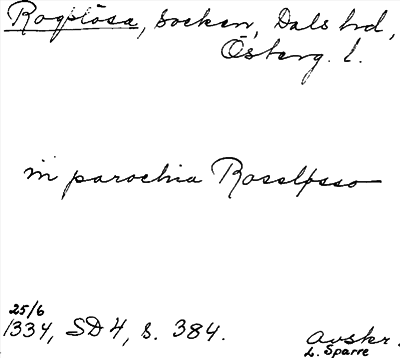 Rogslösa, socken, Dals hd,
Österg. l.
in parochia Roselpsso
25/6
1334, SD 4, s. 384.
Avskr.
L. Sparre